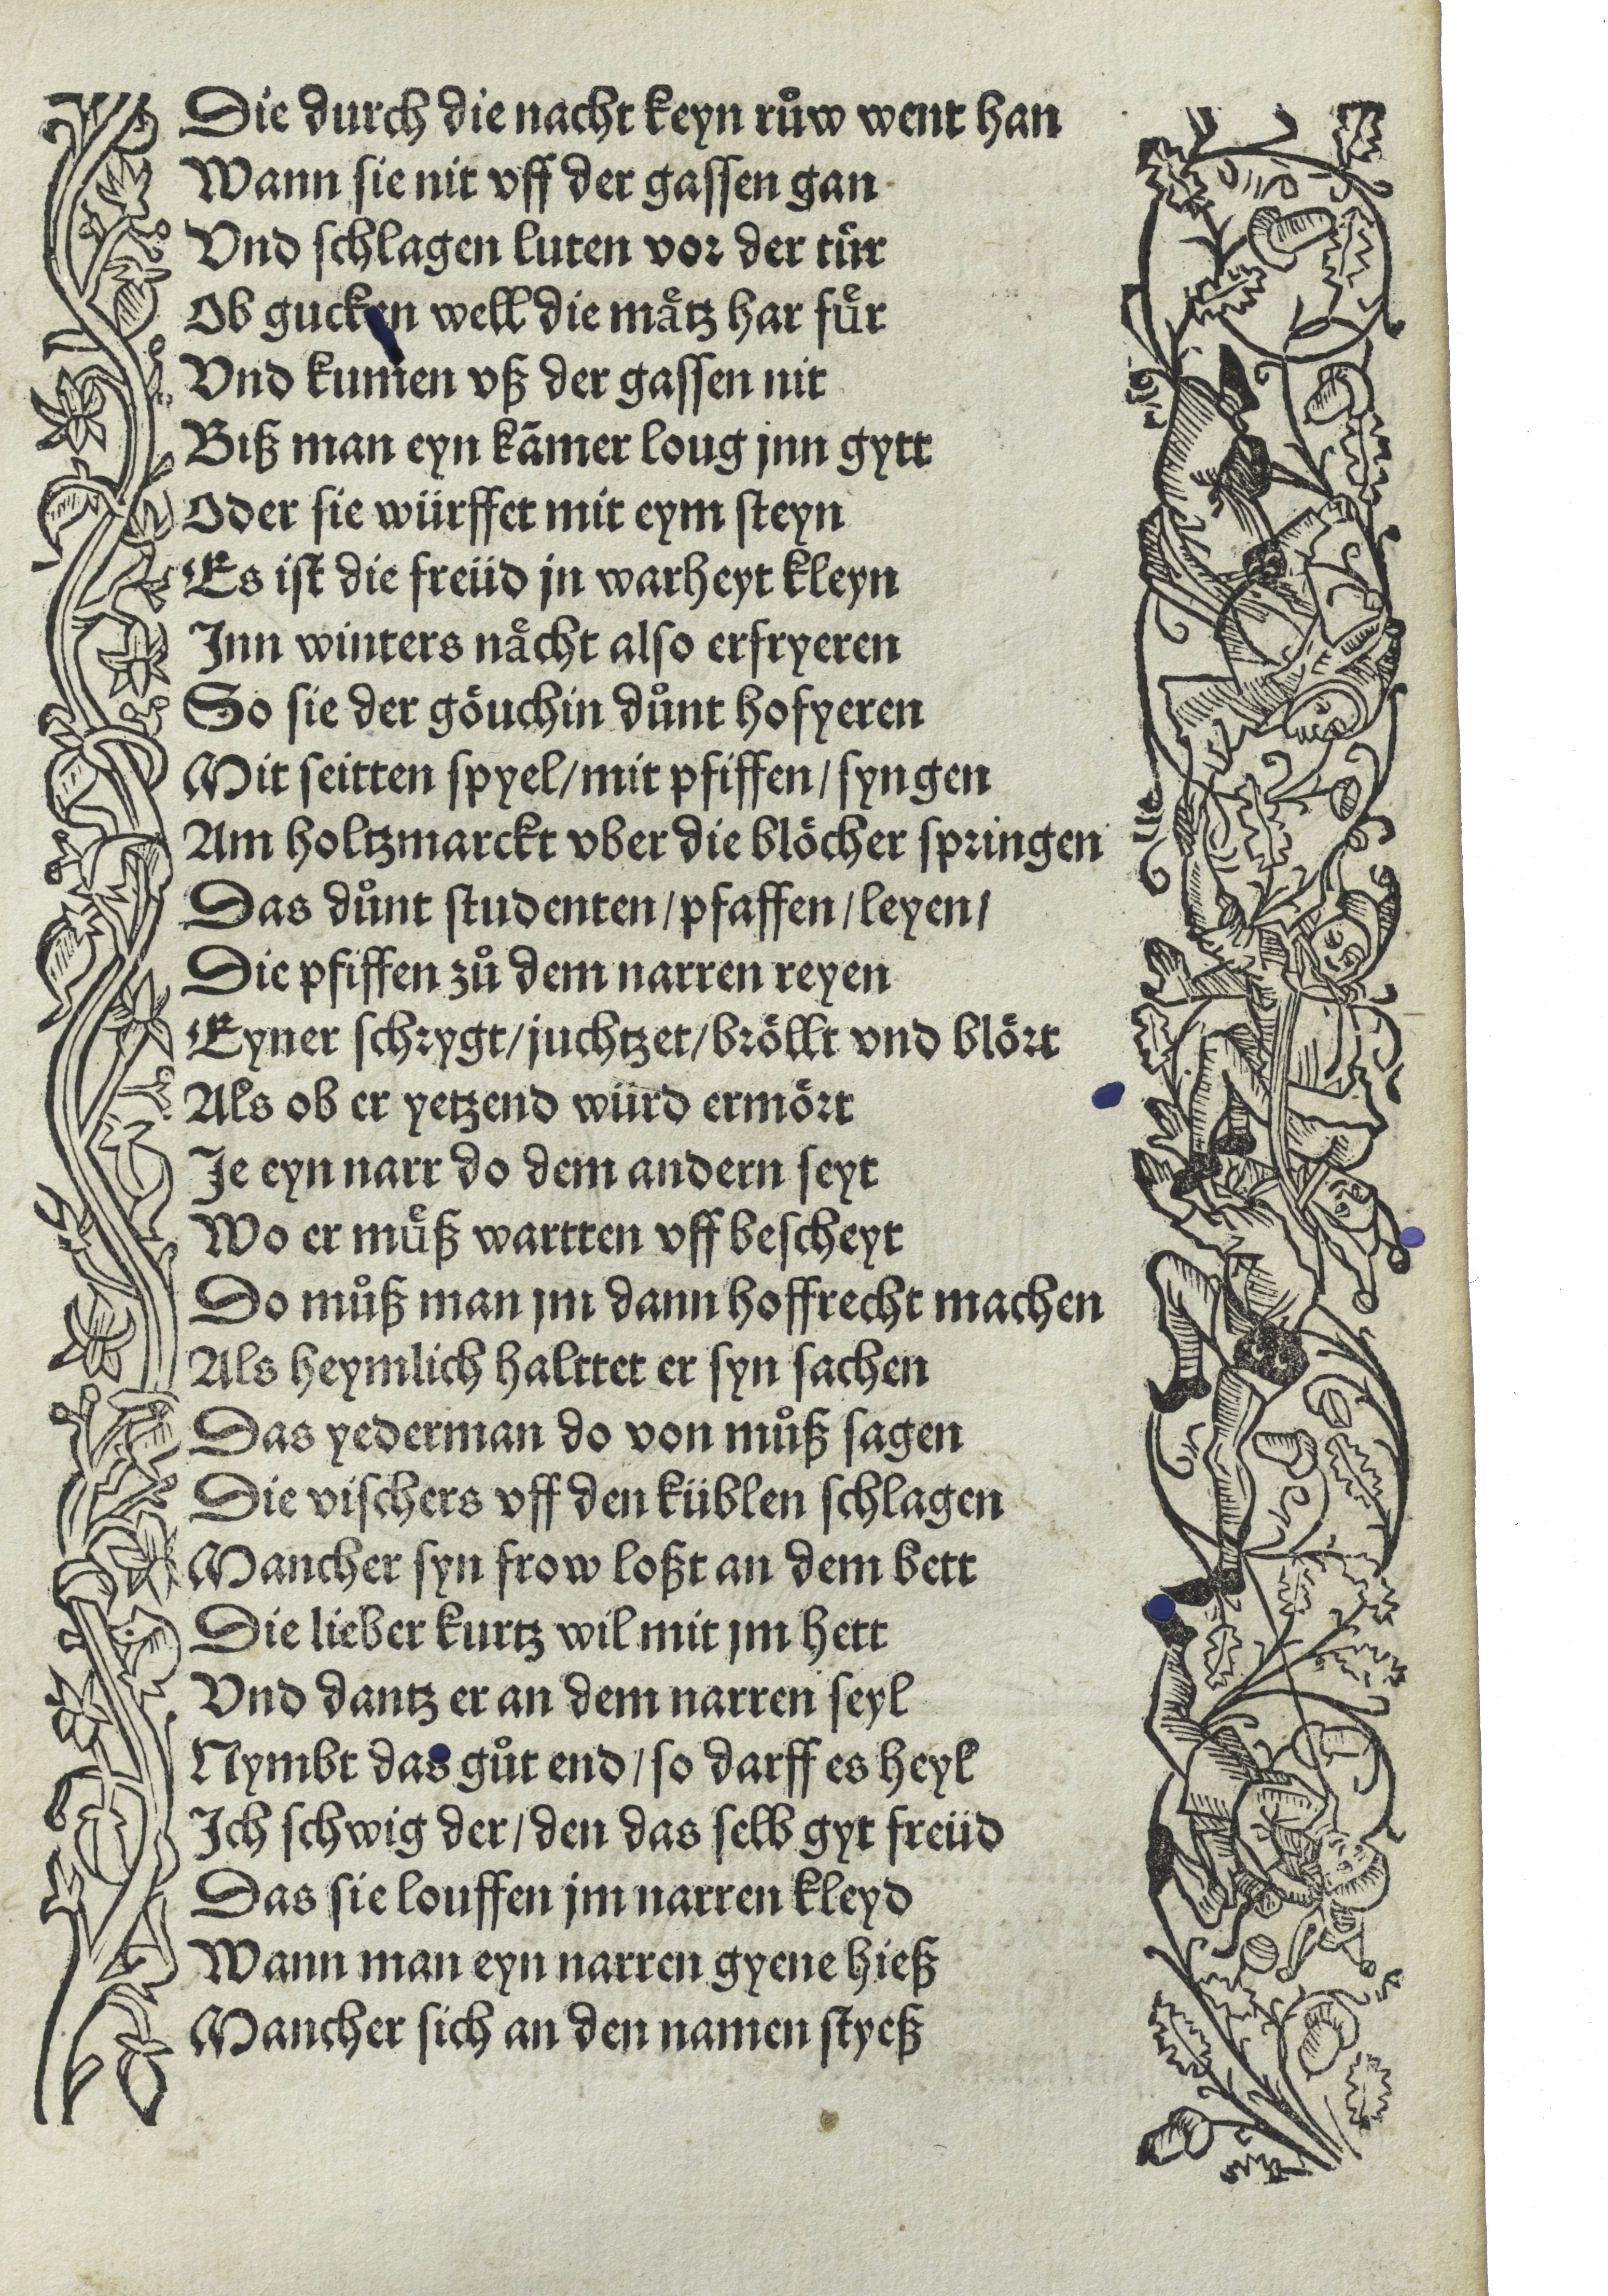 Die durch die nacht keyn růw went han
Wann sie nit vff der gassen gan
Vnd schlagen luten vor der tür
Ob gucken well die mätz har für
Vnd kumen vß der gassen nit
Biß man eyn kāmer loug jnn gytt
Oder sie würffet mit eym steyn
Es ist die freüd jn warheyt kleyn
Jnn winters nächt also erfryeren
So sie der göuchin důnt hofyeren
Mit seitten spyel/mit pfiffen/syngen
Am holtzmarckt vber die blöcher springen
Das důnt studenten/pfaffen/leyen/
Die pfiffen zů dem narren reyen
Eyner schrygt/juchtzet/bröllt vnd blört
Als ob er yetzend würd ermört
Je eyn narr do dem andern seyt
Wo er müß wartten vff bescheyt
Do můß man jm dann hoffrecht machen
Als heymlich halttet er syn sachen
Das yederman do von můß sagen
Die vischers vff den küblen schlagen
Mancher syn frow loßt an dem bett
Die lieber kurtz wil mit jm hett
Vnd dantz er an dem narren seyl
Nymbt das gůt end/so darff es heyl
Jch schwig der/den das selb gyt freüd
Das sie louffen jm narren kleyd
Wann man eyn narren gyene hieß
Mancher sich an den namen styeß